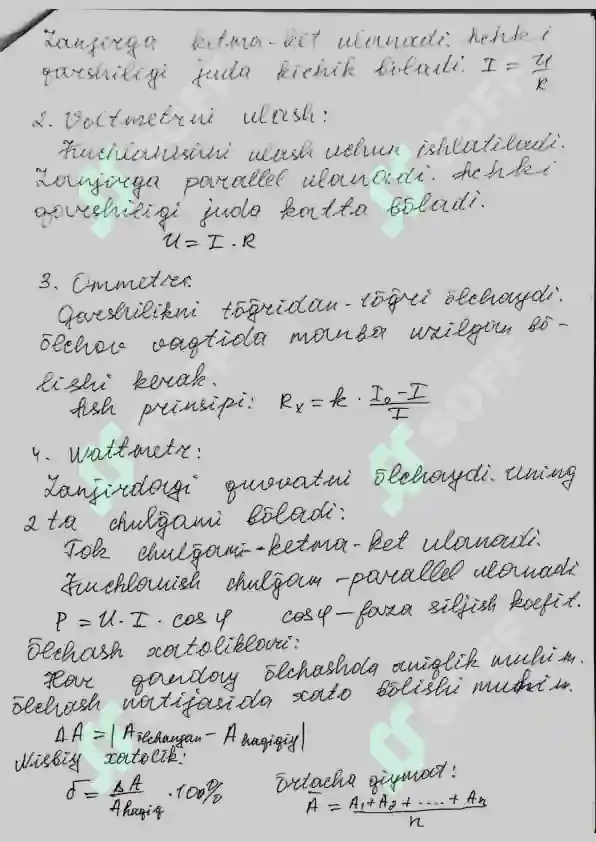 Zanjirga ketma-ket ulanadi. Ichki
qarshiligi juda kichik bōladi. I = U/R
2. Voltmetrni ulash:
Kuchlanishni ulash uchun ishlatiladi.
Zanjirga parallel ulanadi. Ichki
qarshiligi juda katta bōladi.
U = I · R
3. Ommetr:
Qarshilikni tōğridan-tōğri ōlchaydi.
Ōlchov vaqtida manba uzilgan bō-
lishi kerak.
Ish prinsipi: Rx = k · (I₀ - I)/I
4. Wattmetr:
Zanjirdagi quvvatni ōlchaydi. Uning
2 ta chulğami bōladi:
Tok chulğami - ketma-ket ulanadi.
Kuchlanish chulğam - parallel ulanadi
P = U · I · cos φ cos φ - faza siljish koefit.
Ōlchash xatoliklari:
Har qanday ōlchashda aniqlik muhim.
Ōlchash natijasida xato bōlishi muhim.
ΔA = |A ōlchangan - A haqiqiy|
Nisbiy xatolik: Ōrtacha qiymat:
δ = ΔA/A haqiq · 100% Ā = (A₁ + A₂ + .... + Aₙ)/n
SOFF
SOFF
SOFF
SOFF
SOFF
SOFF